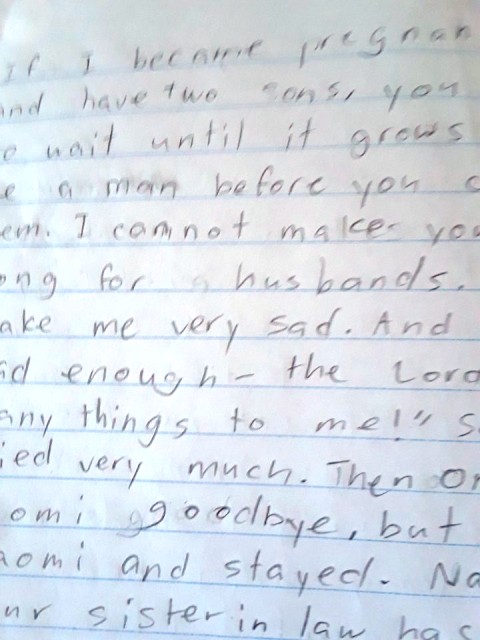 If I became pregnan
and have two sons, you
o wait until it grows
e a man before you c
em. I cannot make you
ong for a husbands.
ake me very sad. And
id enough - the Lord
any things to me!" S
ied very much. Then Or
omi goodbye, but
aomi and stayed. Na
ur sister in law has